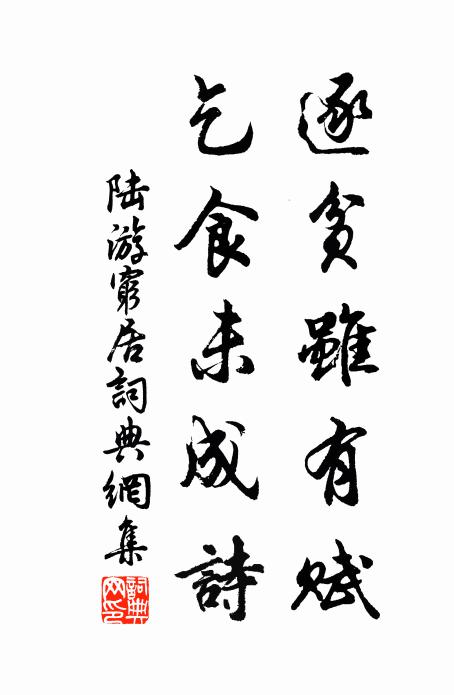 逐貧雖有賦
乞食未成詩
陸游窮居詞典網集
詞典網印